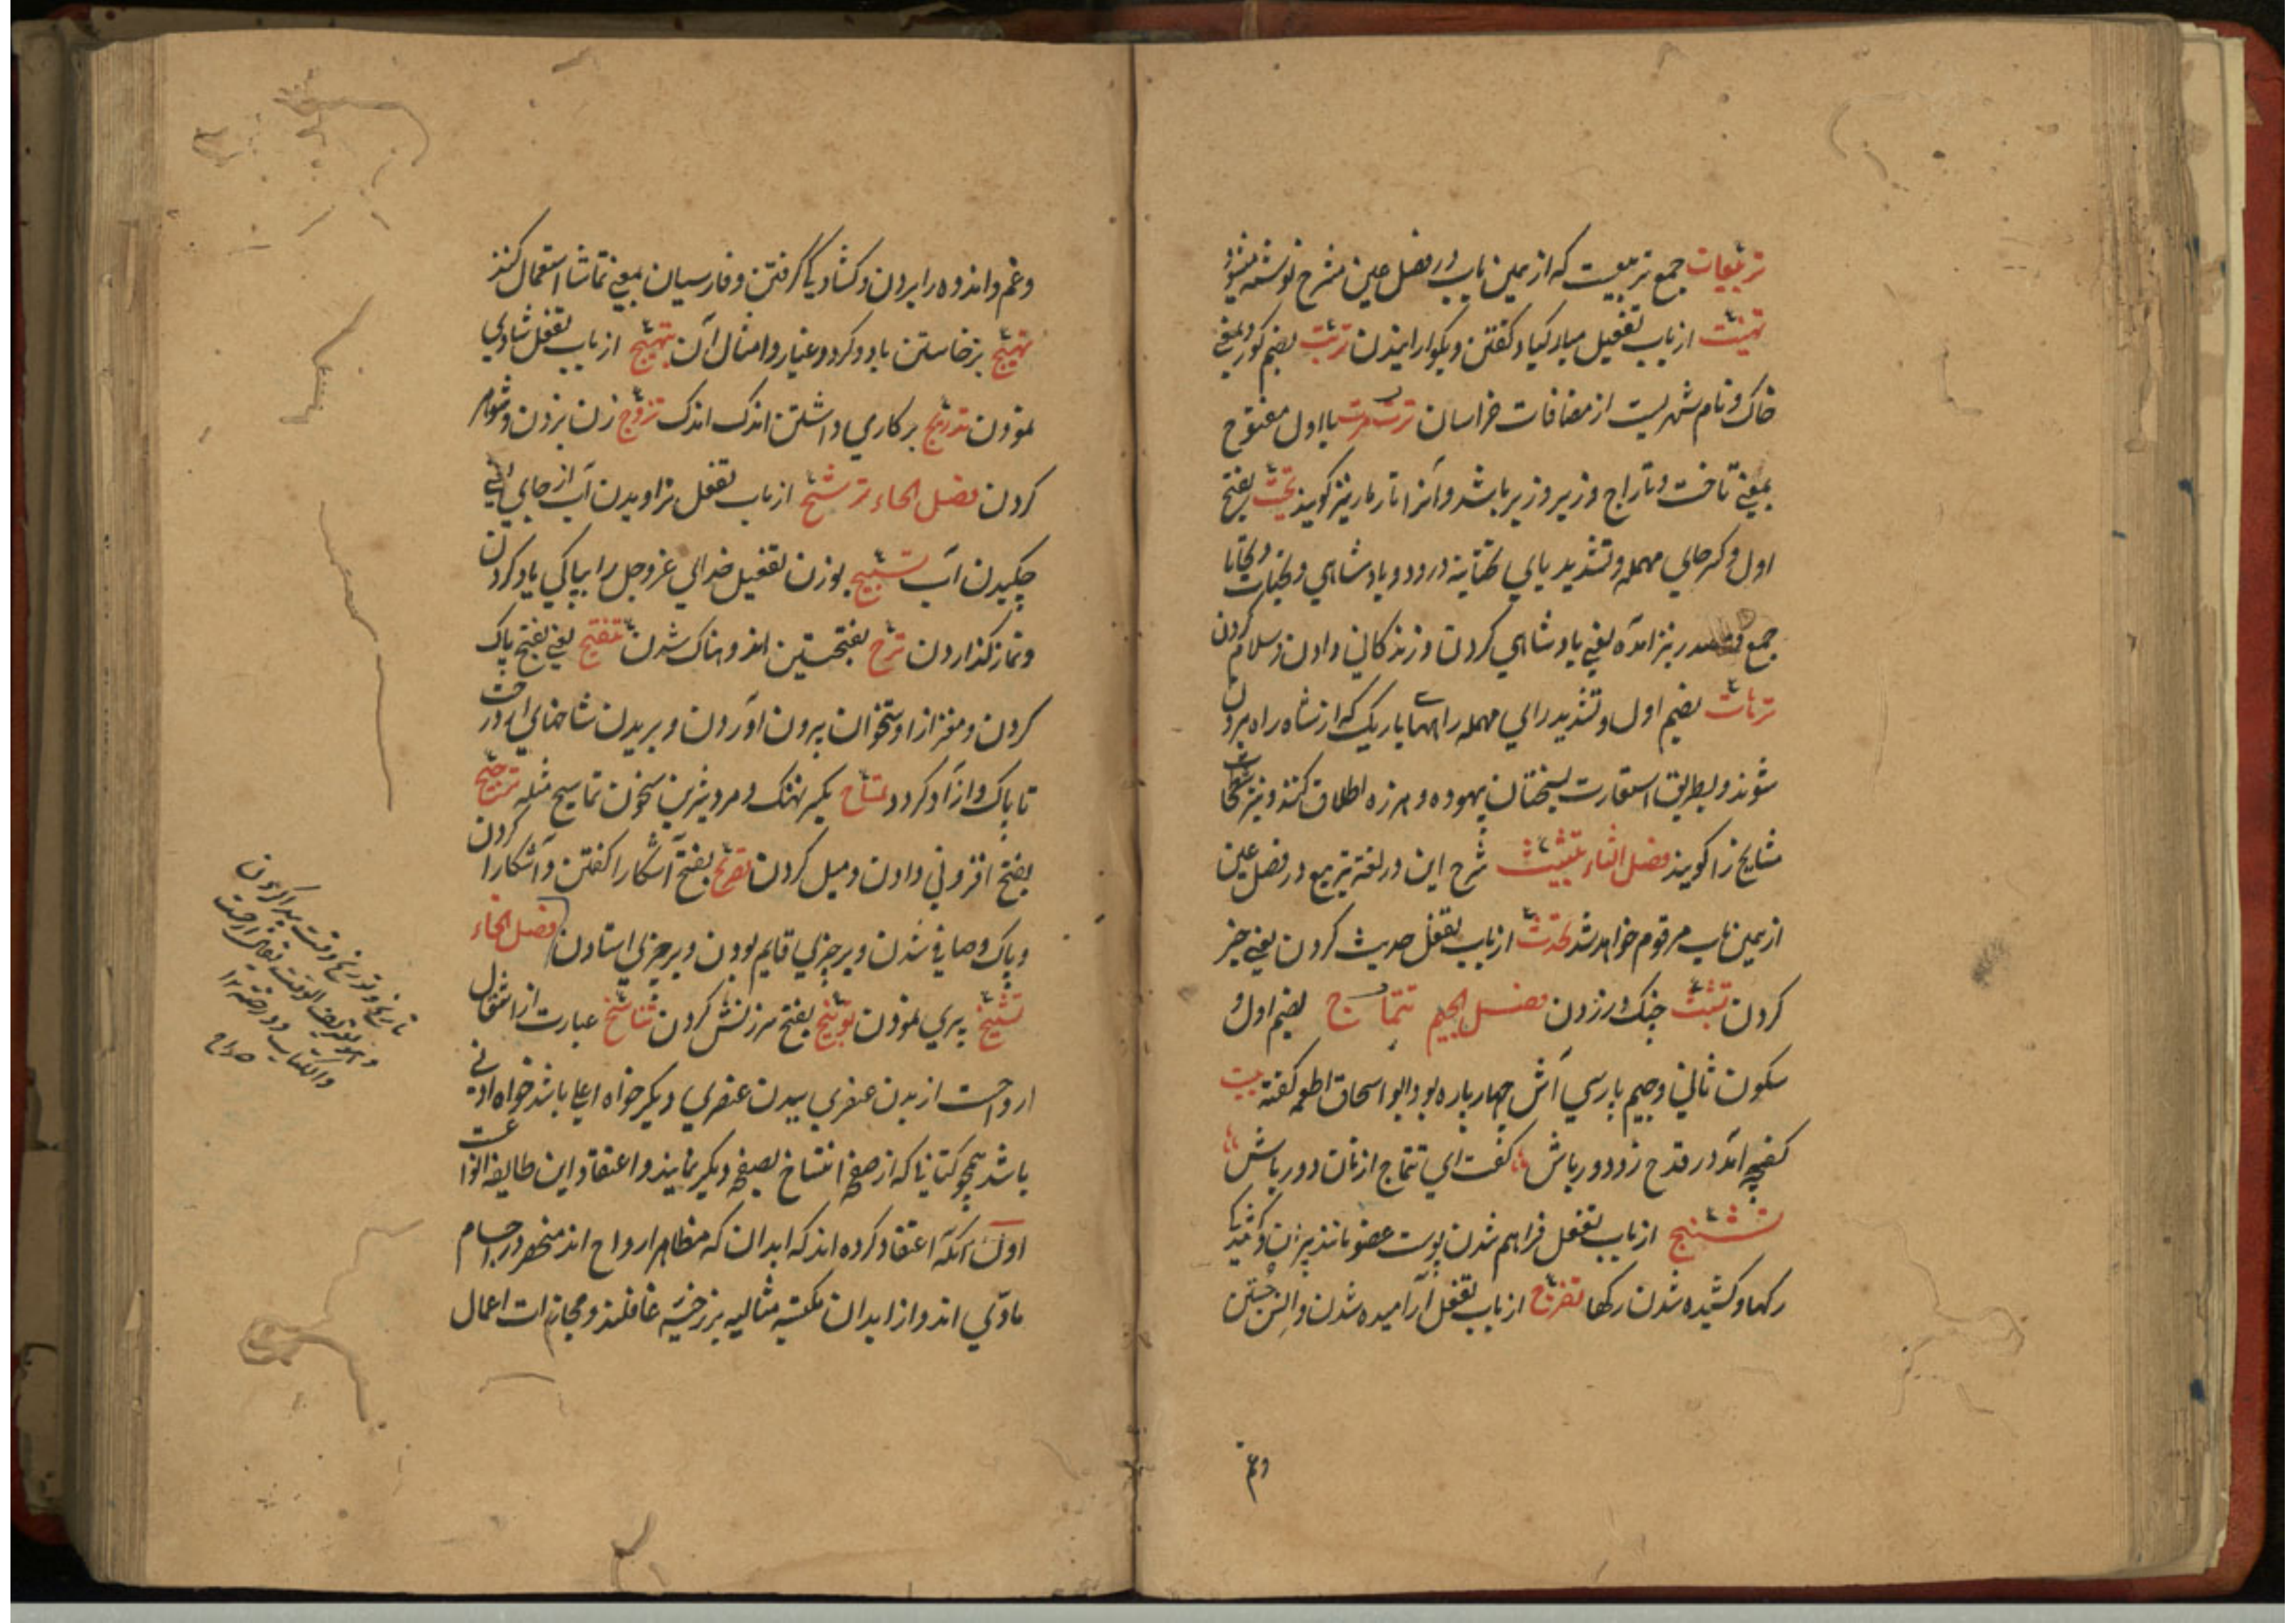 تربیعات جمع تربیعست که از همین باب در فصل عین مشرح نوشته میشود
تهنیت از باب تفعیل مبارکباد کفتن و بکوارانیدن تربت بضم کور و بمعنی
خاک و نام شهریست از مضافات خراسان ترت مرت با اول مفتوح
بمعنی تاخت و تاراج و زیر و زبر باشد و آنرا تار مار نیز کویند تحیت بفتح
اول و کسر حای مهمله و تشدید یای تحتانیه درود و پادشاهی و تحیات و تحایا
جمع و مصدر نیز آمده یعنی پادشاهی کردن و زندکانی دادن و سلام کردن
ترهات بضم اول و تشدید رای مهمله راهها باریک که از شاه راه بیرون
شوند و بطریق استعارت بسخنان بیهوده و هرزه اطلاق کنند و نیز شطحیات
مشایخ را کویند فصل الثاء تثلیث شرح این در لغة تربیع در فصل عین
از همین باب مرقوم خواهد شد تحدث از باب تفعل حدیث کردن یعنی خبر
کردن تشبث چنک در زدن فصل الجیم تتماج بضم اول و
سکون ثانی و جیم پارسی آش چهار پاره بود ابو اسحاق اطعمه کفته بیت
کفچه آمد در قدح زد دورباش کفت ای تتماج از نان دور باش
تشنج از باب تفعل فراهم شدن پوست عضو مانند پیران و کشید
رکها و کشیده شدن رکها تفرج از باب تفعل آرامیده شدن و انس جستن
وغم
وغم و اندوه را بردن و کشادیکا کرفتن و فارسیان بمعنی تماشا استعمال کنند
تهیج برخاستن باد و کرد و غبار و امثال آن تبهیج از باب تفعل شادی
نمودن تدریج بر کاری داشتن اندک اندک تزوج زن بردن و شوهر
کردن فصل الحاء ترشح از باب تفعل تراویدن آب از جای یعنی
چکیدن آب تسبیح بوزن تفعیل خدای عزوجل را بپاکی یاد کردن
و نماز کذاردن ترح بفتحتین اندوهناک شدن تنقیح یعنی بفتح پاک
کردن و مغز از استخوان بیرون آوردن و بریدن شاخهای درخت
تا پاک و آزاد کردد تمساح بکسر نهنک و مرد شرین سخن تماسیح مثله ترجیح
بفتح افزونی دادن و میل کردن تصریح بفتح آشکارا کفتن و آشکارا کردن
و پاک و صافی شدن و بر چیزی قایم بودن و بر چیزی استادن فصل الخاء
تشیخ پیری نمودن توبیخ بفتح سرزنش کردن تناسخ عبارت از انتقال
ارواحست از بدن عنصری ببدن عنصری دیکر خواه اعلی باشد خواه ادنی
باشد همچو کتابتا که از صفحه انتساخ بصفحه دیکر نمایند و اعتقاد این طایفه انواعست
اول آنکه اعتقاد کرده اند که ابدان که مظاهر ارواح اند منحصر در اجسام
مادی اند و از ابدان مکتسبه مثالیه برزخیه غافلند و مجازات اعمال
تاریخ و توریخ وقت پیدا کردن
والکتاب
صراح